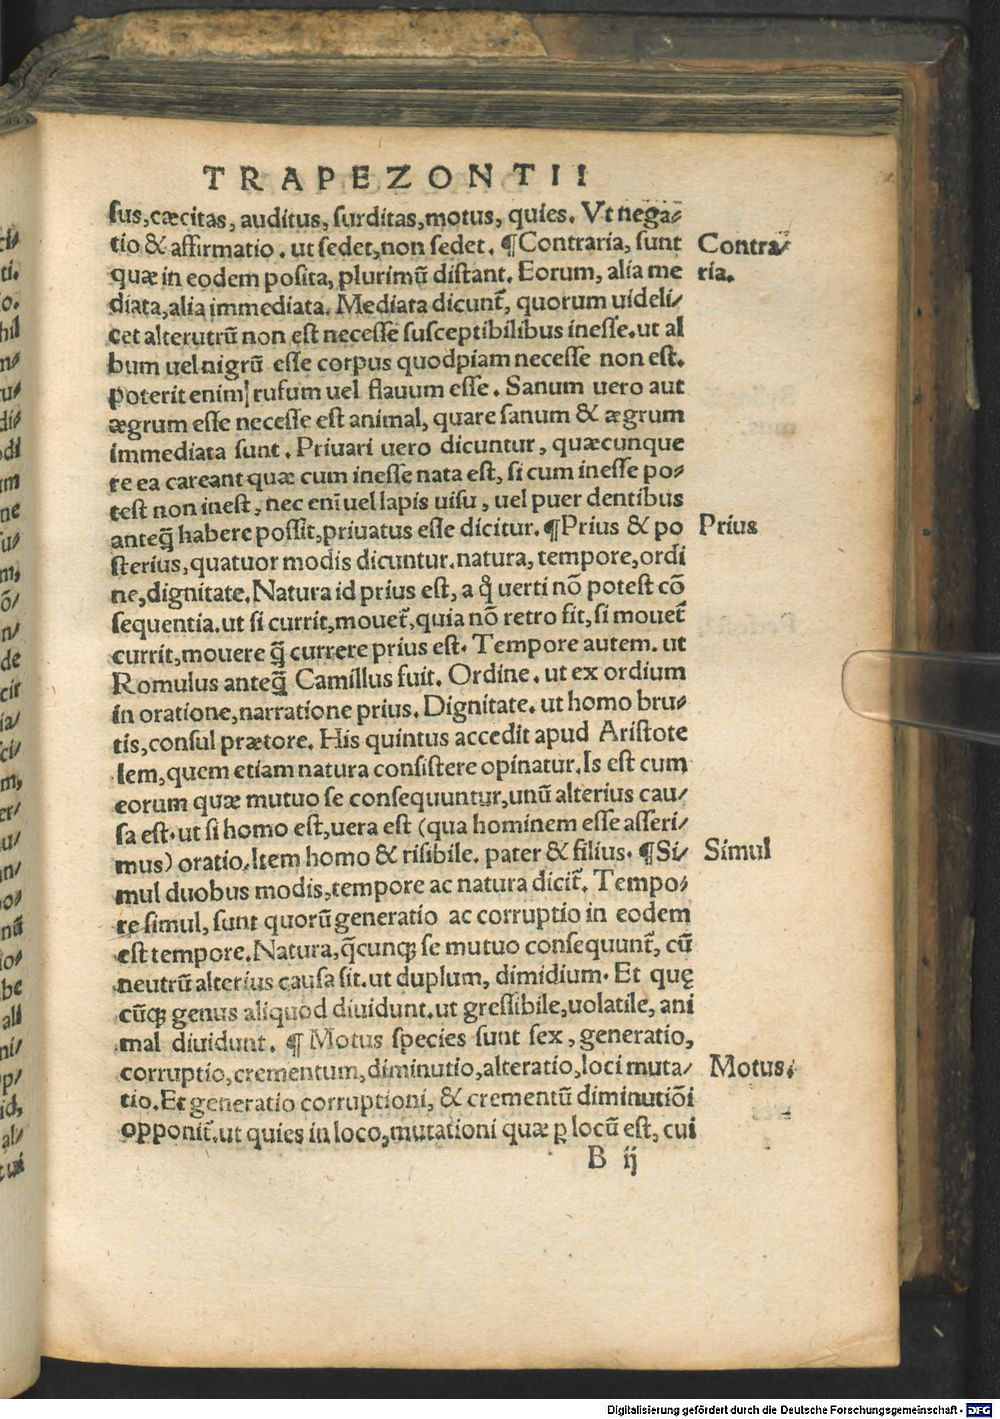 TRAPEZONTII
sus,cæcitas, auditus, surditas,motus, quies. Vt nega⸗
tio & affirmatio. ut sedet,non sedet. ¶Contraria, sunt
Contra⸗
quæ in eodem posita, plurimū distant. Eorum, alia me
ria.
diata,alia immediata. Mediata dicunt̃, quorum uideli⸗
cet alterutrū non est necesse susceptibilibus inesse.ut al
bum uel nigrū esse corpus quodpiam necesse non est.
poterit enim rufum uel flauum esse. Sanum uero aut
ægrum esse necesse est animal, quare sanum & ægrum
immediata sunt. Priuari uero dicuntur, quæcunque
re ea careant quæ cum inesse nata est, si cum inesse po⸗
test non inest, nec enī uel lapis uisu, uel puer dentibus
anteq̃ habere possit,priuatus esse dicitur. ¶Prius & po
Prius
sterius,quatuor modis dicuntur.natura, tempore,ordi
ne,dignitate.Natura id prius est, a q̃ uerti nō potest cō
sequentia.ut si currit,mouet̃,quia nō retro fit, si mouet̃
currit,mouere q̃ currere prius est. Tempore autem. ut
Romulus anteq̃ Camillus fuit. Ordine. ut ex ordium
in oratione,narratione prius. Dignitate. ut homo bru⸗
tis,consul prætore. His quintus accedit apud Aristote
lem,quem etiam natura consistere opinatur.Is est cum
eorum quæ mutuo se consequuntur,unū alterius cau⸗
sa est.ut si homo est,uera est (qua hominem esse asseri⸗
mus) oratio.Item homo & risibile. pater & filius. ¶Si⸗
Simul
mul duobus modis,tempore ac natura dicit̃. Tempo⸗
re simul, sunt quorū generatio ac corruptio in eodem
est tempore.Natura,q̃cunqꝫ se mutuo consequunt̃, cū
neutrū alterius causa sit.ut duplum, dimidium. Et quę
cūqꝫ genus aliquod diuidunt.ut gressibile,uolatile, ani
mal diuidunt. ¶ Motus species sunt sex, generatio,
corruptio,crementum,diminutio,alteratio,loci muta⸗
Motus.
tio.Et generatio corruptioni, & crementū diminutiōi
opponit̃.ut quies in loco,mutationi quæ ꝑ locū est, cui
B ij
Digitalisierung gefördert durch die Deutsche Forschungsgemeinschaft - DFG